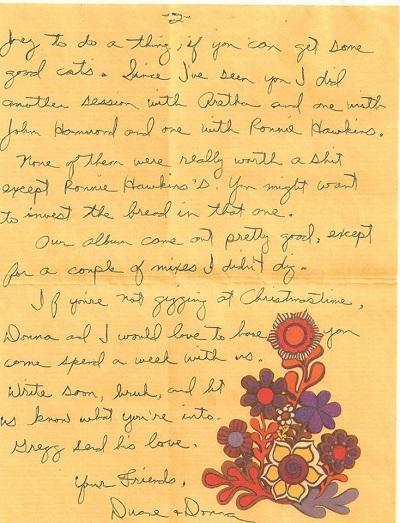 -2-
Joey to do a thing, if you can get some
good cats. Since I've seen you I did
another session with Aretha and one with
John Hammond and one with Ronnie Hawkins.
None of them were really worth a shit
except Ronnie Hawkins's. You might want
to invest the bread in that one.
Our album came out pretty good, except
for a couple of mixes I didn't dig.
If you're not gigging at Christmastime,
Donna and I would love to have you
come spend a week with us.
Write soon, bruh, and let
us know what you're into.
Gregg send his love.
Your Friends,
Duane + Donna